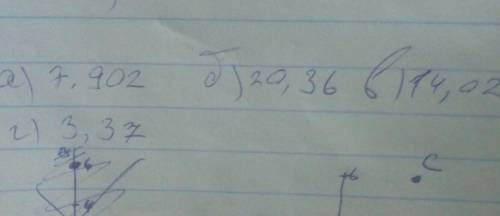 а) 7.902 б) 20,36 в) 14,02
г) 3,37
C